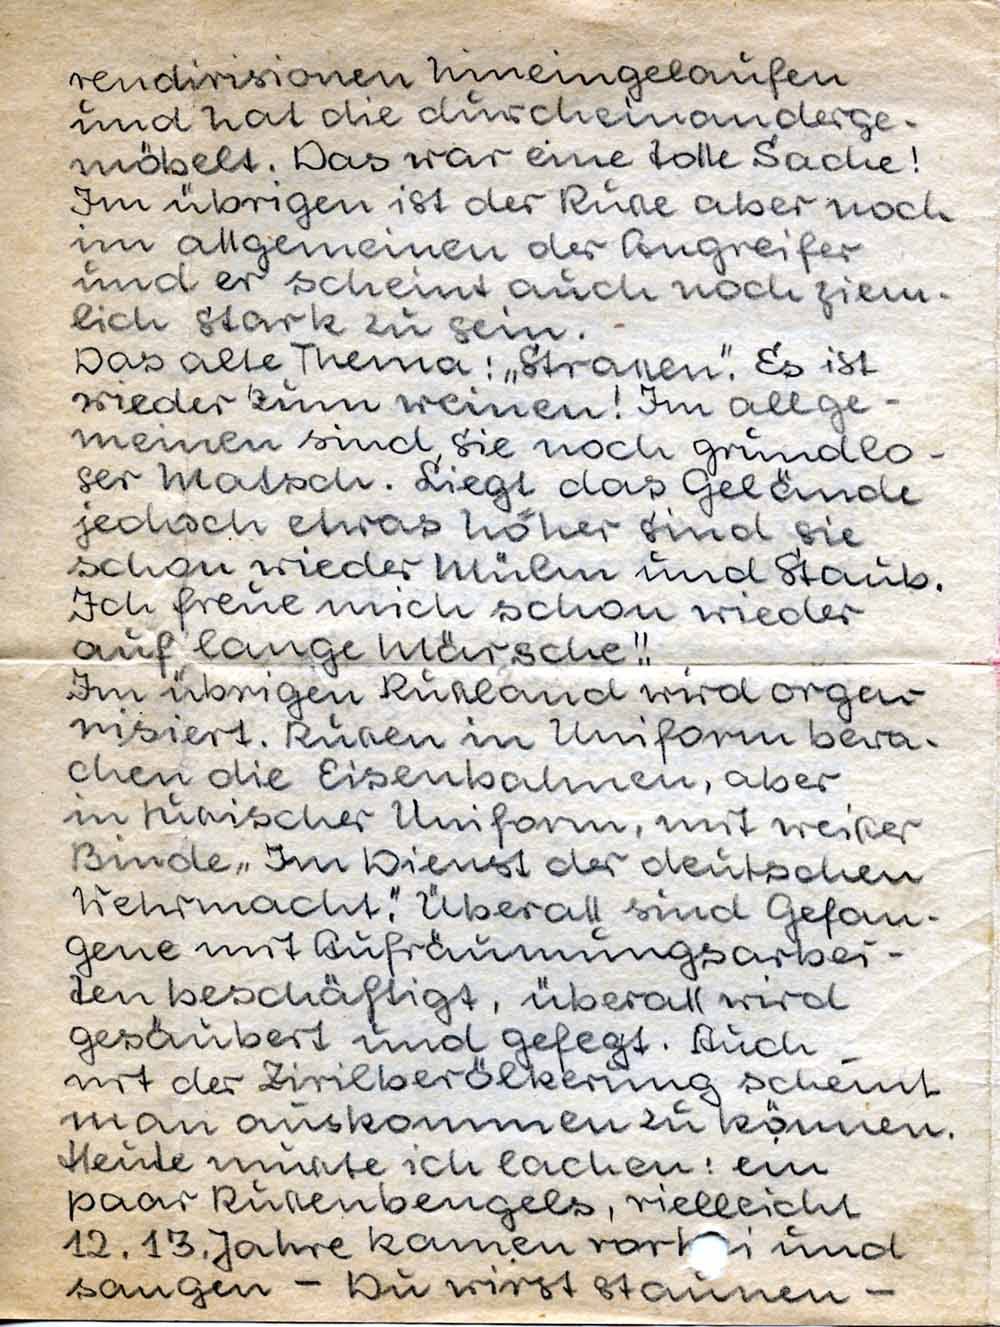 rendivisionen hineingelaufen
und hat die durcheinanderge-
möbelt. Das war eine tolle Sache!
Im übrigen ist der Ruße aber noch
im allgemeinen der Angreifer
und er scheint auch noch ziem-
lich stark zu sein.
Das alte Thema: „Straßen". Es ist
wieder zum weinen! Im allge-
meinen sind sie noch grundlo-
ser Matsch. Liegt das Gelände
jedoch etwas höher sind sie
schon wieder Mülm und Staub.
Ich freue mich schon wieder
auf lange Märsche!!
Im übrigen Rußland wird orga-
nisiert. Rußen in Uniform bewa-
chen die Eisenbahnen, aber
in rußischer Uniform, mit weißer
Binde „Im Dienst der deutschen
Wehrmacht". Überall sind Gefan-
gene mit Aufräumungsarbei-
ten beschäftigt, überall wird
gesäubert und gefegt. Auch
mit der Zivilbevölkerung scheint
man auskommen zu können.
Heute mußte ich lachen: ein
paar Rußenbengels, vielleicht
12, 13, Jahre kamen vorbei und
sangen – Du wirst staunen –